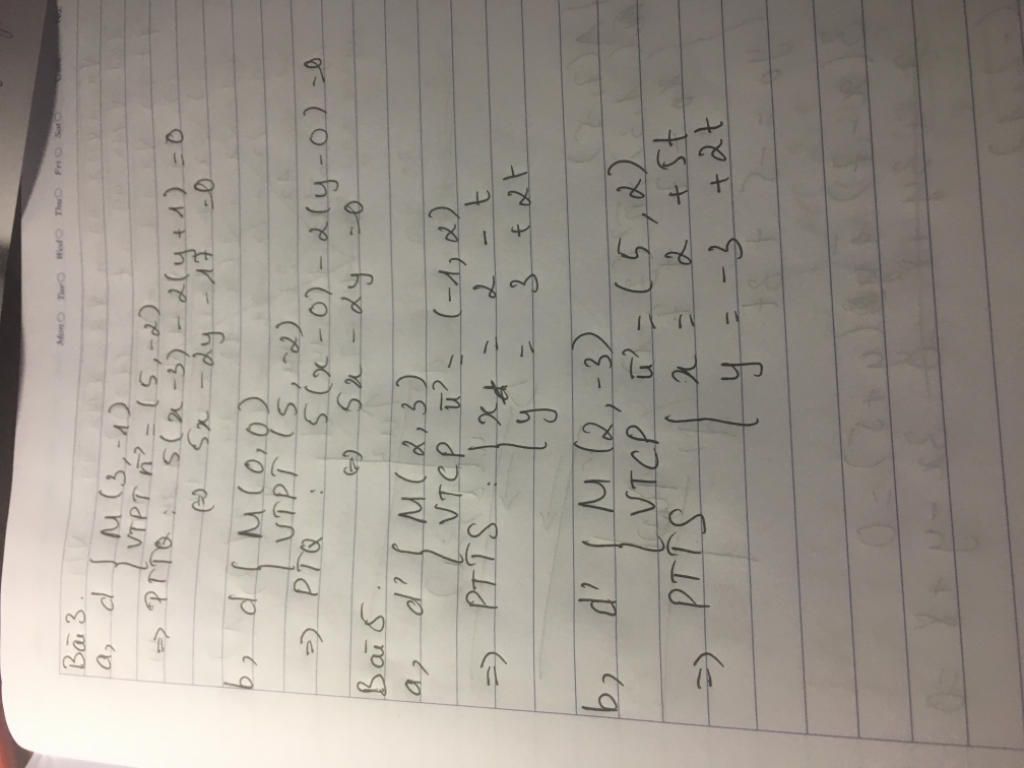 Mon Tue Wed Thu Fri Sat
Bài 3.
a, d { M (3, -1)
VTPT n⃗ = (5, -2)
=> PTTQ : 5(x - 3) - 2(y + 1) = 0
(=) 5x - 2y - 17 = 0
b, d { M (0, 0)
VTPT (5, -2)
=> PTQ : 5(x - 0) - 2(y - 0) = 0
(=) 5x - 2y = 0
Bài 5.
a, d' { M (2, 3)
VTCP u⃗ = (-1, 2)
=> PTTS : { x = 2 - t
y = 3 + 2t
b, d' { M (2, -3)
VTCP u⃗ = (5, 2)
=> PTTS { x = 2 + 5t
y = -3 + 2t